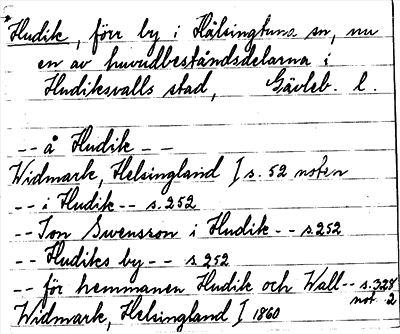 *Hudik, förr by i Hälsingtuna sn, nu
en av huvudbeståndsdelarna i
Hudiksvalls stad, Gävleb. l.
-- å Hudik --
Widmark, Helsingland I s. 52 noten
-- i Hudik -- s. 252
-- Jon Swensson i Hudik -- s. 252
-- Hudiks by -- s 252
-- för hemmanen Hudik och Wall -- s. 328
not 2
Widmark, Helsingland I 1860